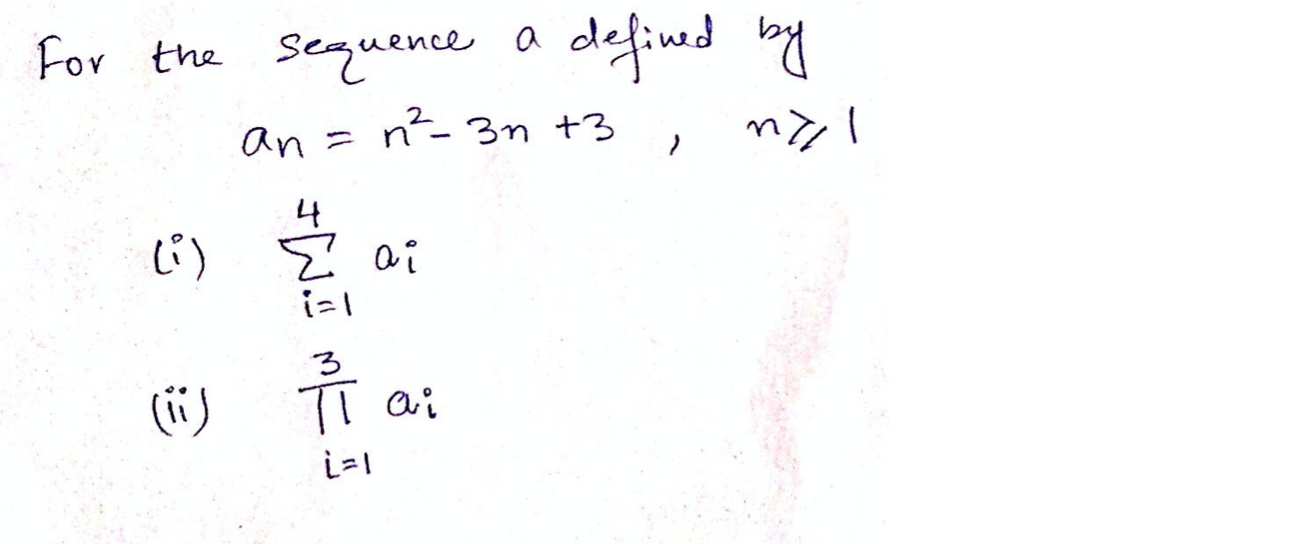 For the sequence a defined by
an = n² - 3n + 3 , n ⩾ 1
(i) 4 Σ i=1 ai
(ii) 3 Π i=1 ai